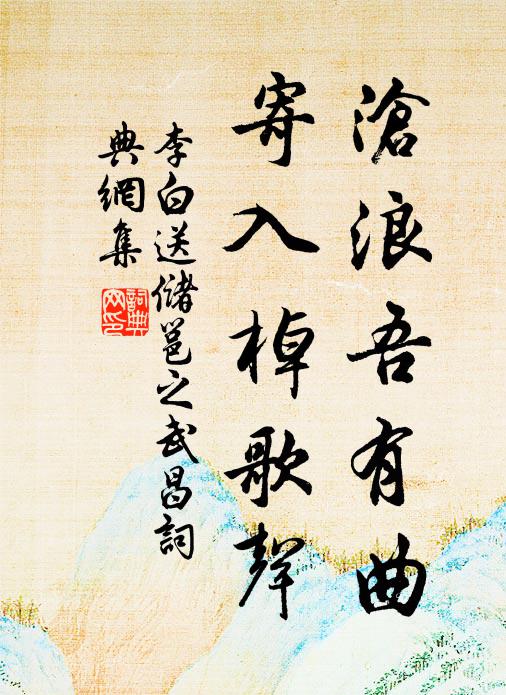 滄浪吾有曲
寄入棹歌聲
李白送儲邕之武昌詞
典網集
詞典
网印